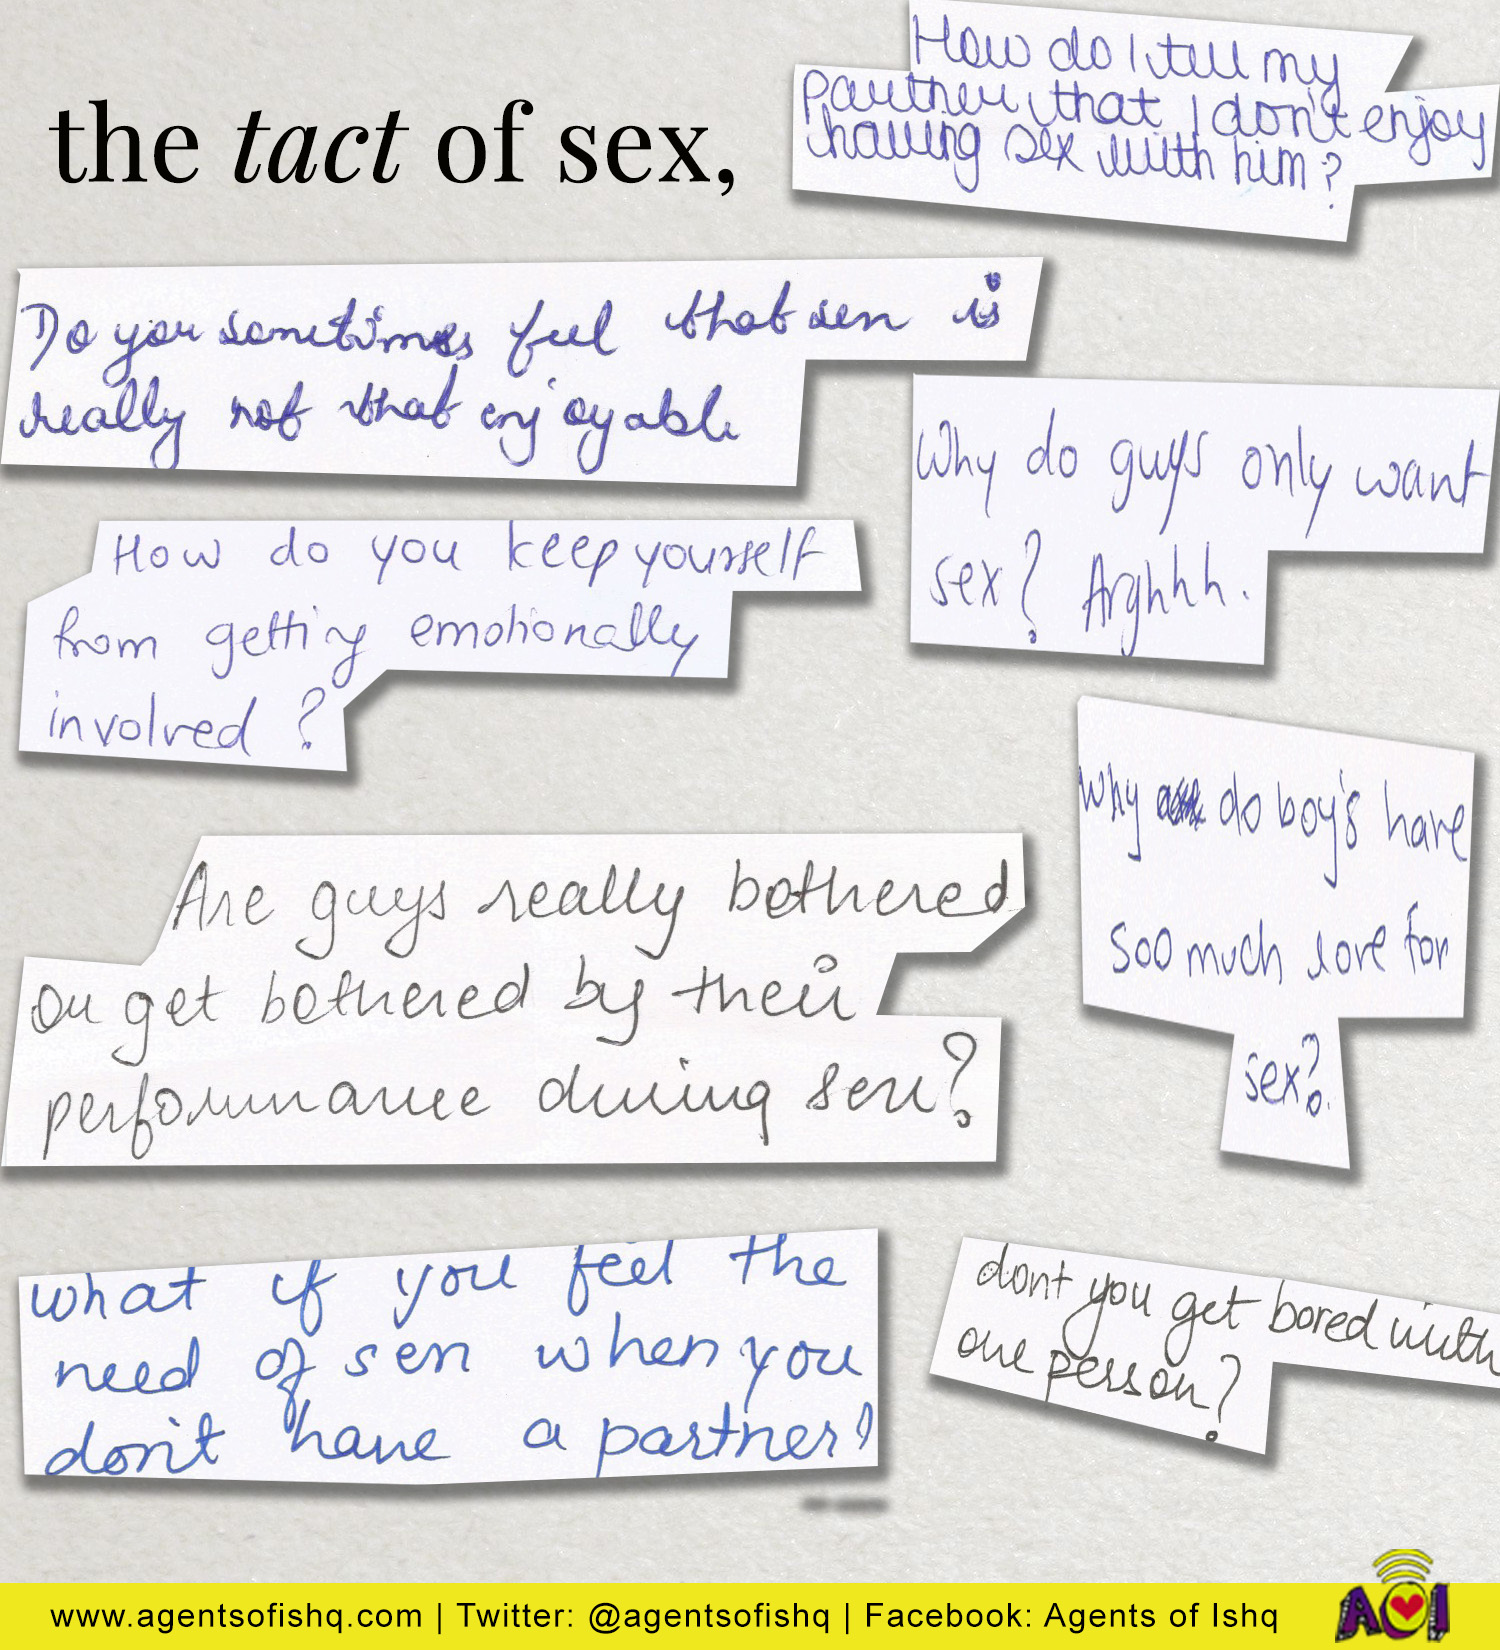 the tact of sex,
How do I tell my
partner that I don't enjoy
having sex with him?
Do you sometimes feel that sex is
really not that enjoyable
Why do guys only want
sex? Arghhh.
How do you keep yourself
from getting emotionally
involved?
Why do boy's have
soo much love for
sex?
Are guys really bothered
or get bothered by their
performance during sex?
what if you feel the
need of sex when you
don't have a partner?
dont you get bored with
one person?
www.agentsofishq.com | Twitter: @agentsofishq | Facebook: Agents of Ishq
AOI